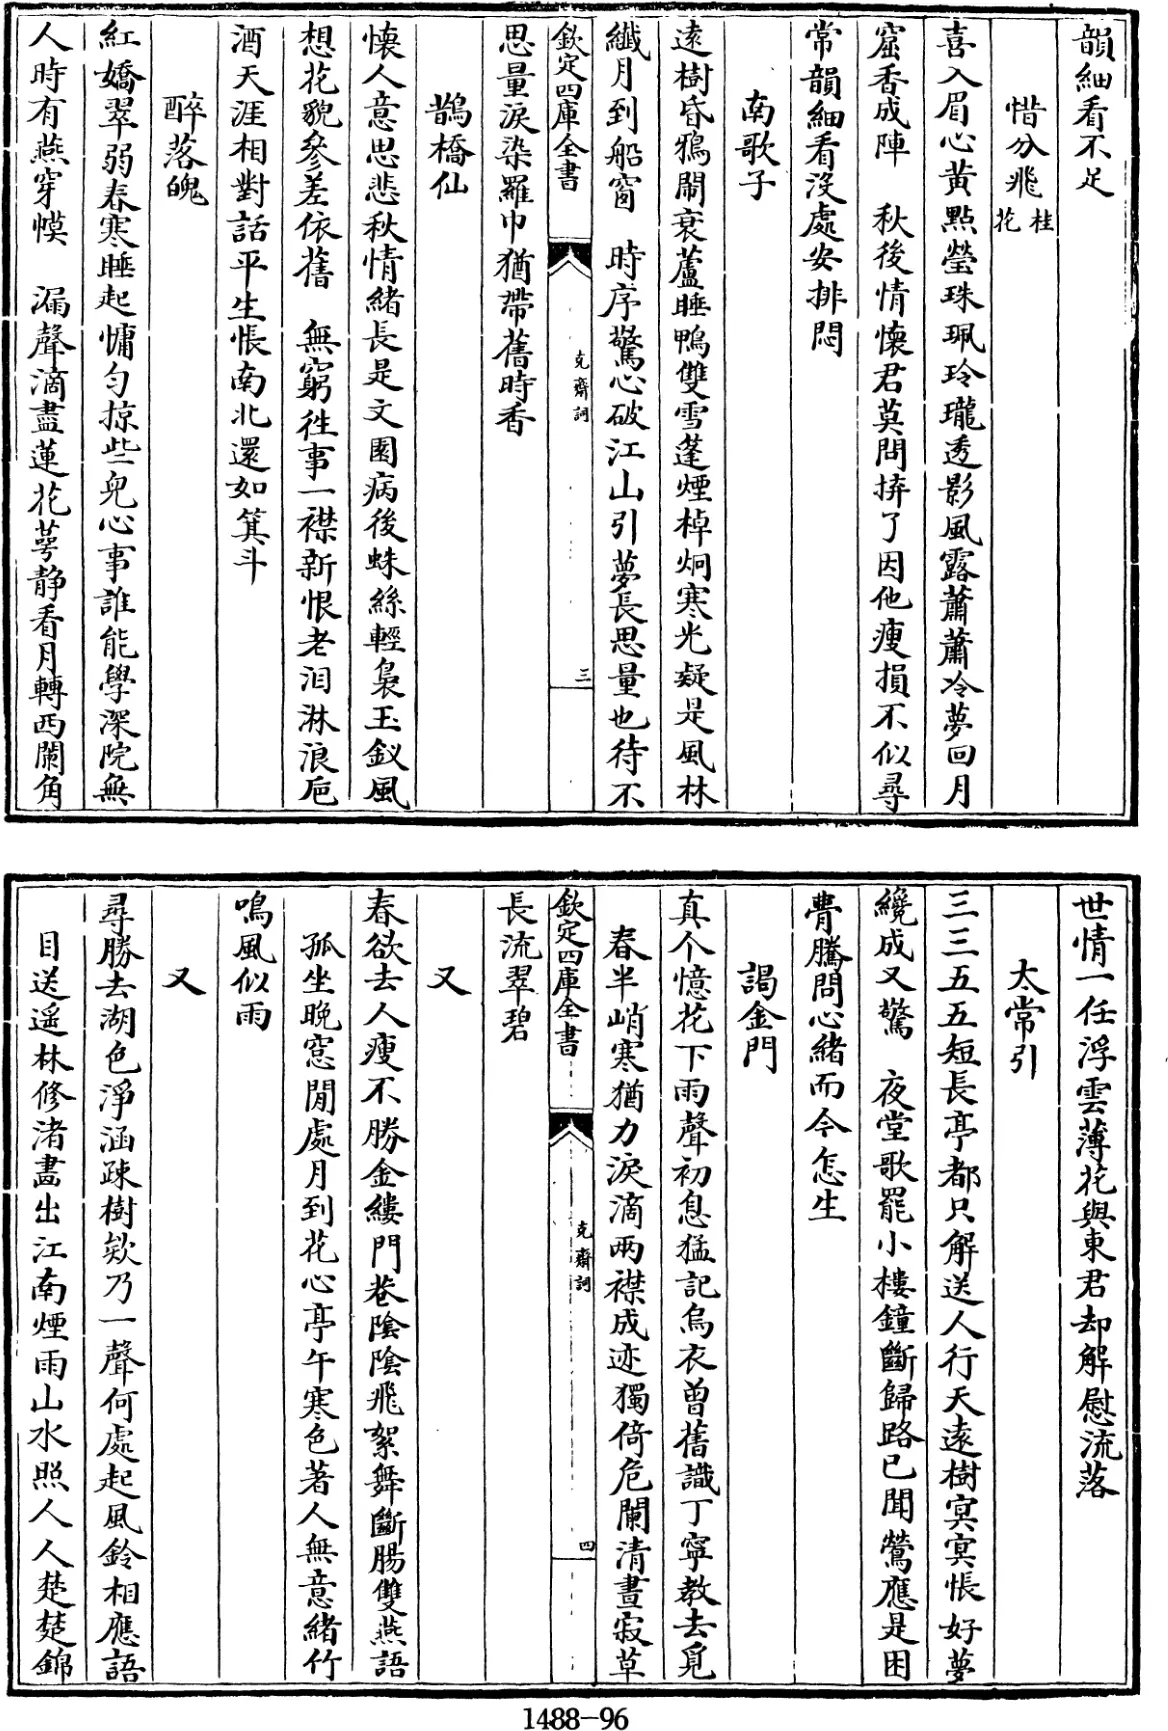 韻細看不足
惜分飛 桂花
喜入眉心黄點瑩珠珮玲瓏透影風露蕭蕭冷夢回月
窟香成陣　秋後情懷君莫問拚了因他瘦損不似尋
常韻細看沒處安排悶
南歌子
遠樹昏鴉鬧衰蘆睡鴨雙雪蓬煙棹炯寒光疑是風林
纖月到船窗　時序驚心破江山引夢長思量也待不
欽定四庫全書
克齋詞
三
思量淚染羅巾猶帶舊時香
鵲橋仙
懷人意思悲秋情緒長是文園病後蛛絲輕裊玉釵風
想花貌參差依舊　無窮往事一襟新恨老淚淋浪巵
酒天涯相對話平生悵南北還如箕斗
醉落魄
紅嬌翠弱春寒睡起慵匀掠些兒心事誰能學深院無
人時有燕穿幙　漏聲滴盡蓮花萼静看月轉西闌角
世情一任浮雲薄花與東君却解慰流落
太常引
三三五五短長亭都只解送人行天遠樹冥冥悵好夢
纔成又驚　夜堂歌罷小樓鐘斷歸路已聞鶯應是困
瞢騰問心緒而今怎生
謁金門
真个憶花下雨聲初息猛記烏衣曾舊識丁寧教去覓
春半峭寒猶力淚滴兩襟成迹獨倚危闌清晝寂草
欽定四庫全書
克齋詞
四
長流翠碧
又
春欲去人瘦不勝金縷門巷陰陰飛絮舞斷腸雙燕語
孤坐晚窓閒處月到花心亭午寒色著人無意緒竹
鳴風似雨
又
尋勝去湖色淨涵疎樹欸乃一聲何處起風鈴相應語
目送遥林修渚畵出江南煙雨山水照人人楚楚錦
1488-96